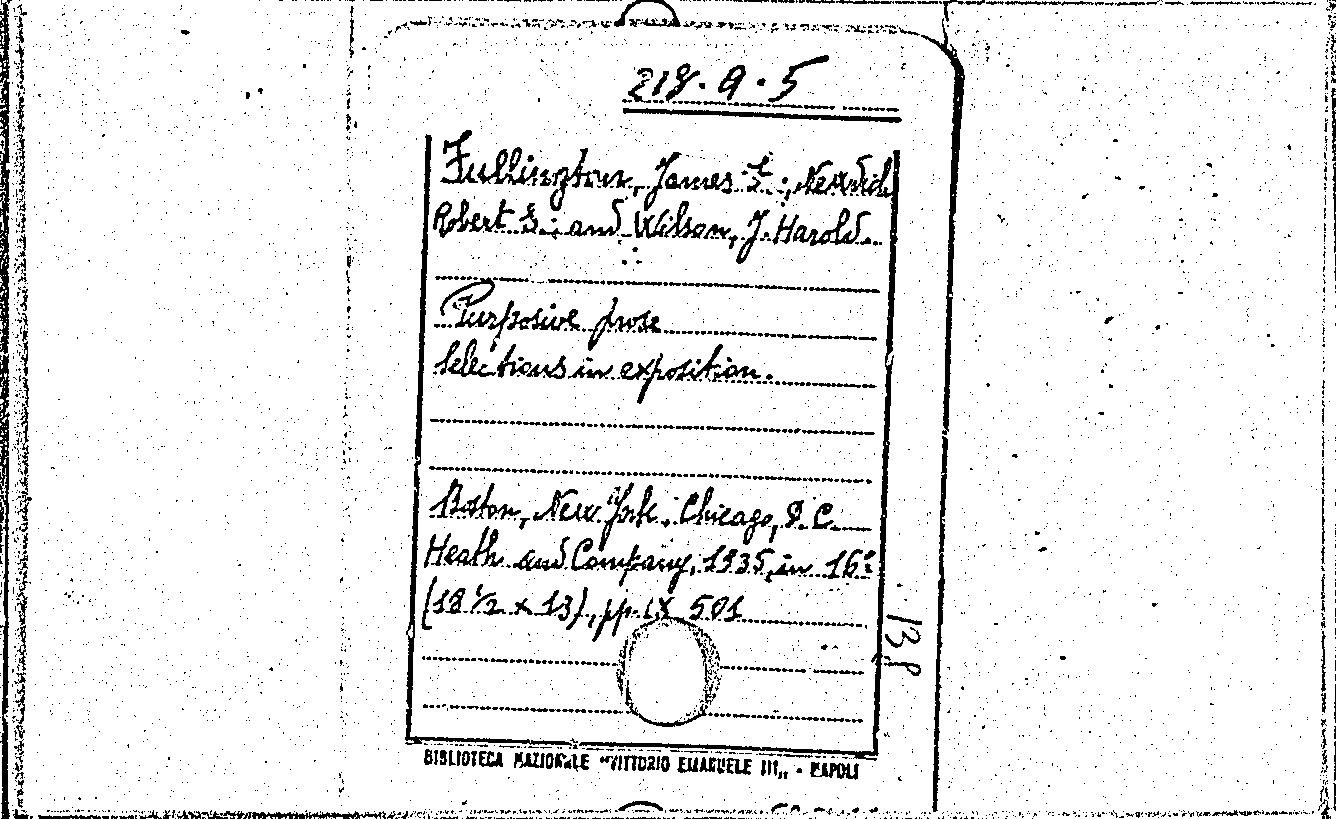 218.A.5
Fullington, James F.;
Robert S.; and Wilson, J. Harold.
Purposive prose
selections in exposition.
Boston, New York, Chicago, D. C.
Heath and Company, 1935, in 16°
(18 1/2 x 13), pp. IX 501
BIBLIOTECA NAZIONALE "VITTORIO EMANUELE III„ - NAPOLI